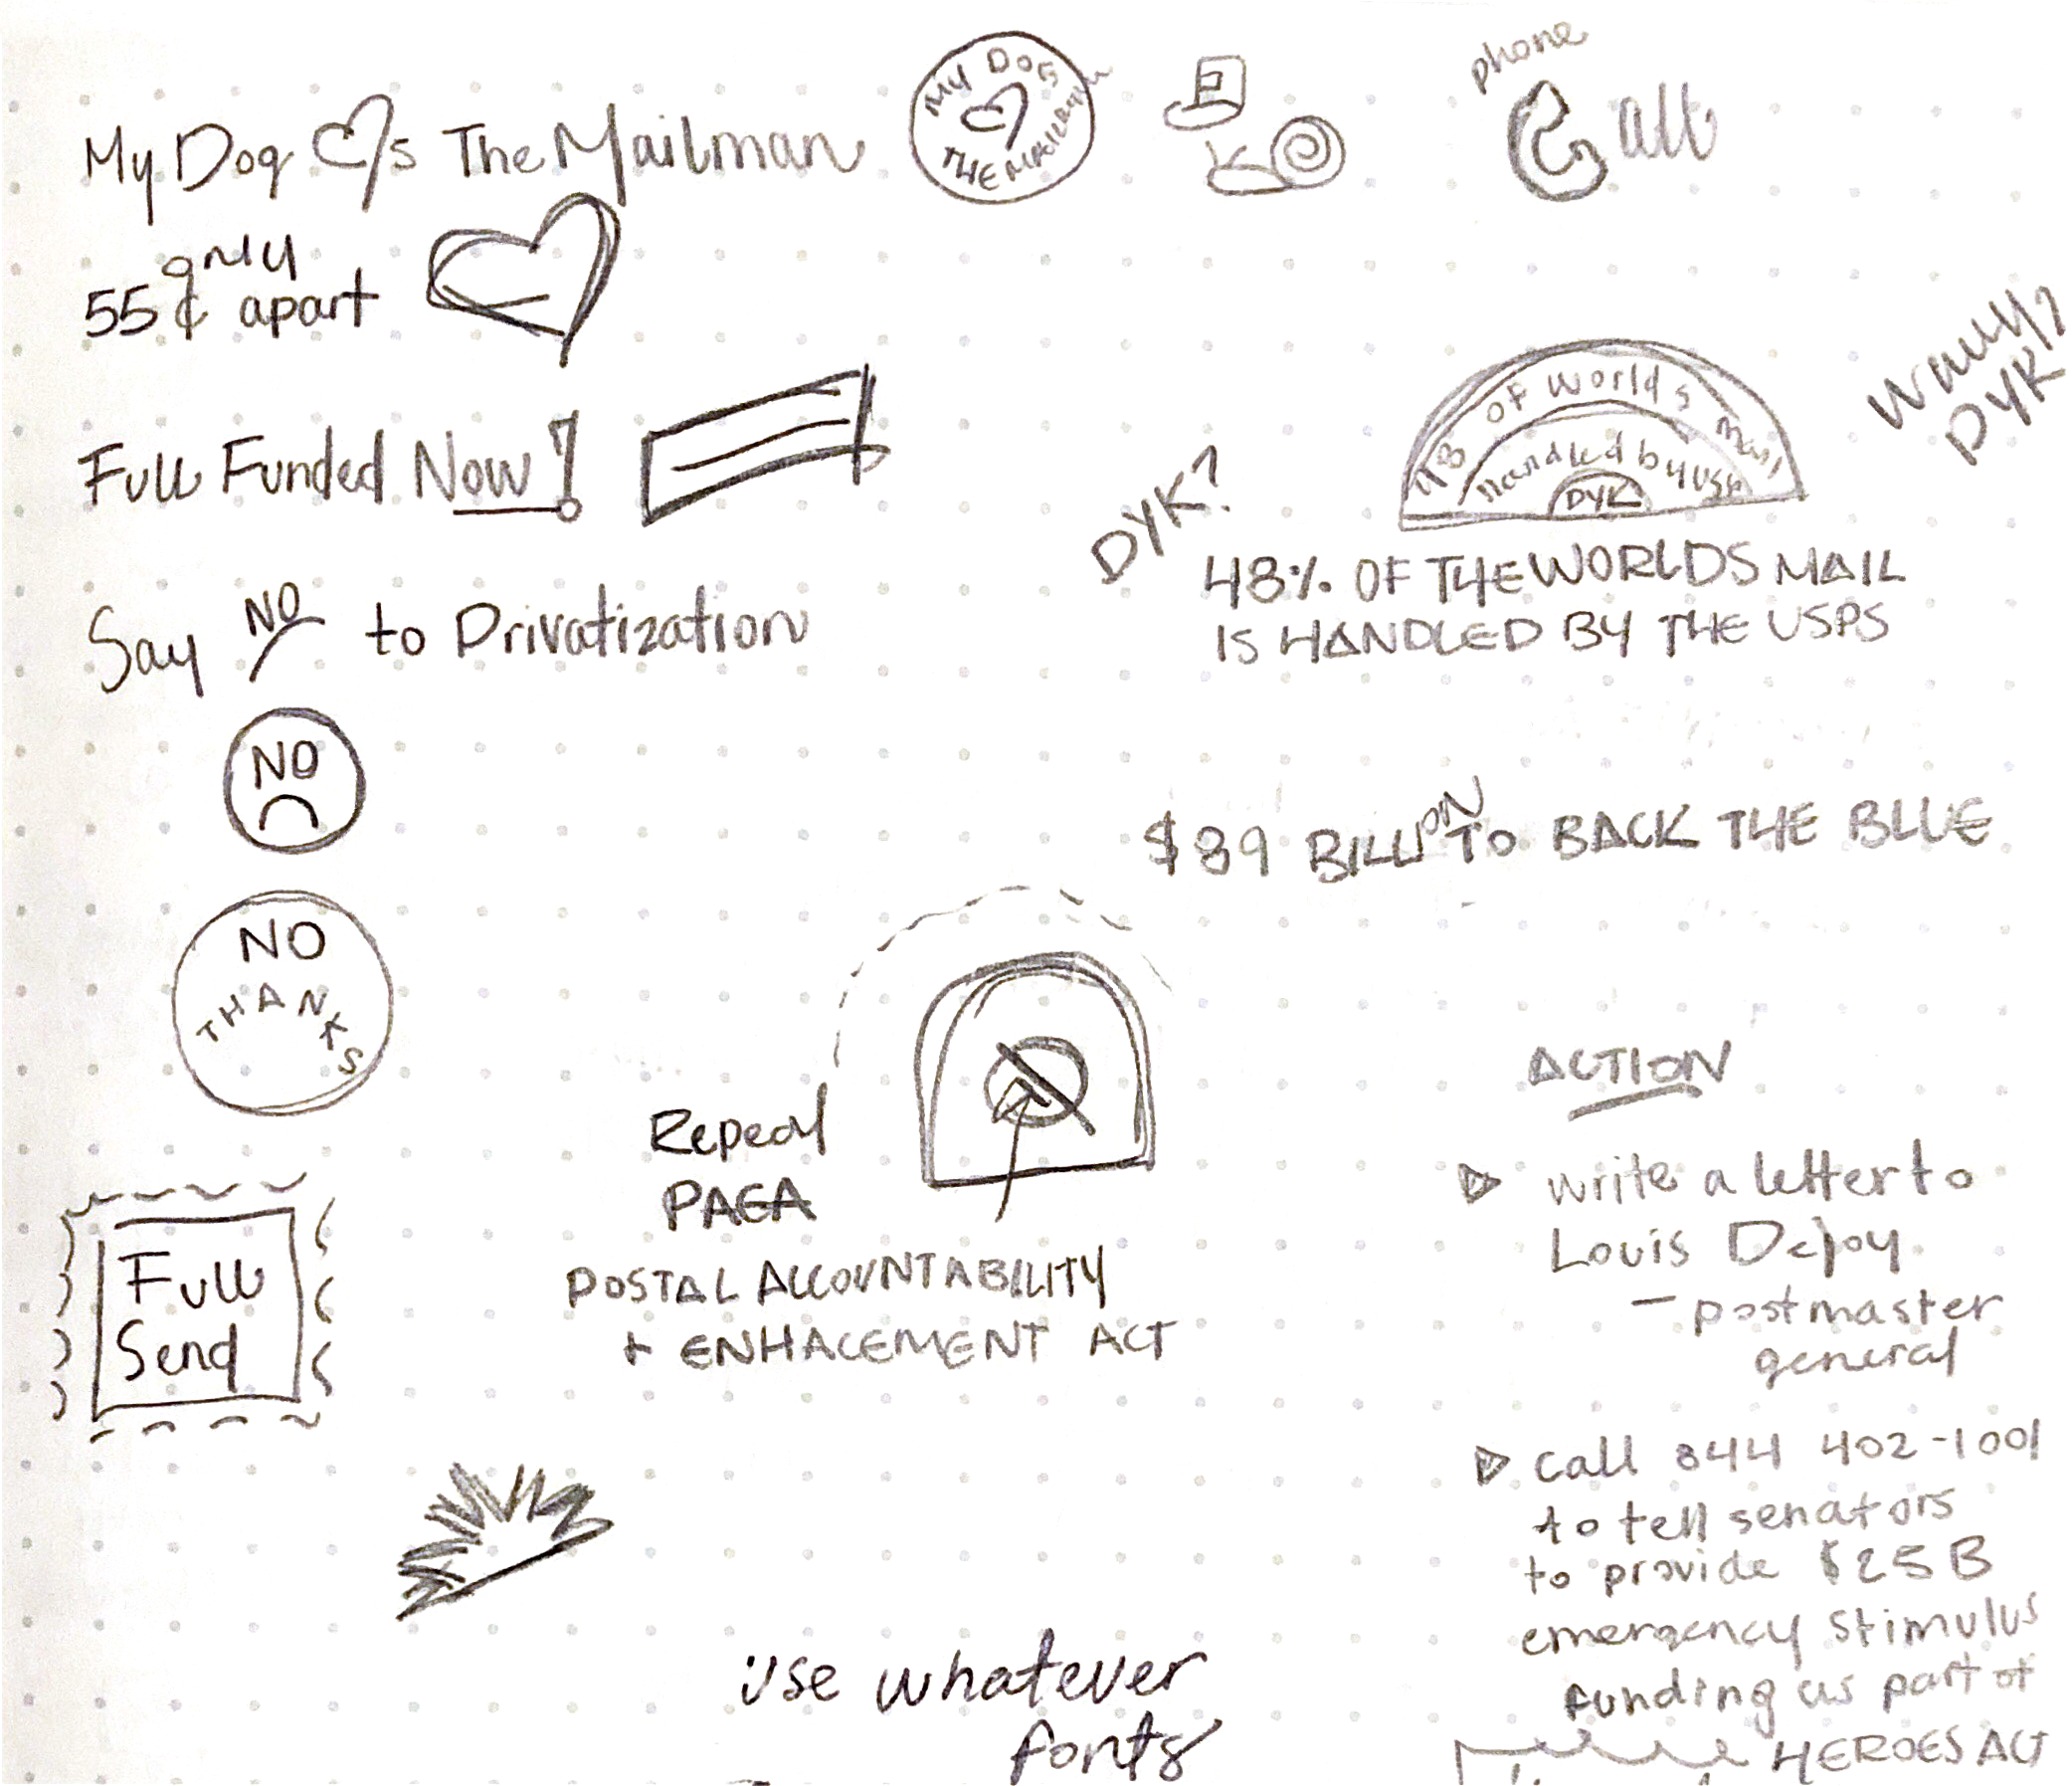 My Dog ♡s The Mailman
MY DOG
♡
THE MAILMAN
E
phone
Call
only
55¢ apart
Full Funded Now!
Say NO to Privatization
NO
NO
THANKS
Full
Send
DYK?
48 OF Worlds mail
Handled by USPS
DYK
DYK?
48% OF THE WORLDS MAIL
IS HANDLED BY THE USPS
$89 BILLION TO BACK THE BLUE
Repeal
PAEA
POSTAL ACCOUNTABILITY
+ ENHACEMENT ACT
ACTION
write a letter to
Louis Dejoy
– postmaster
general
call 844 402-1001
to tell senators
to provide $25B
emergency stimulus
funding as part of
HEROES ACT
use whatever
fonts